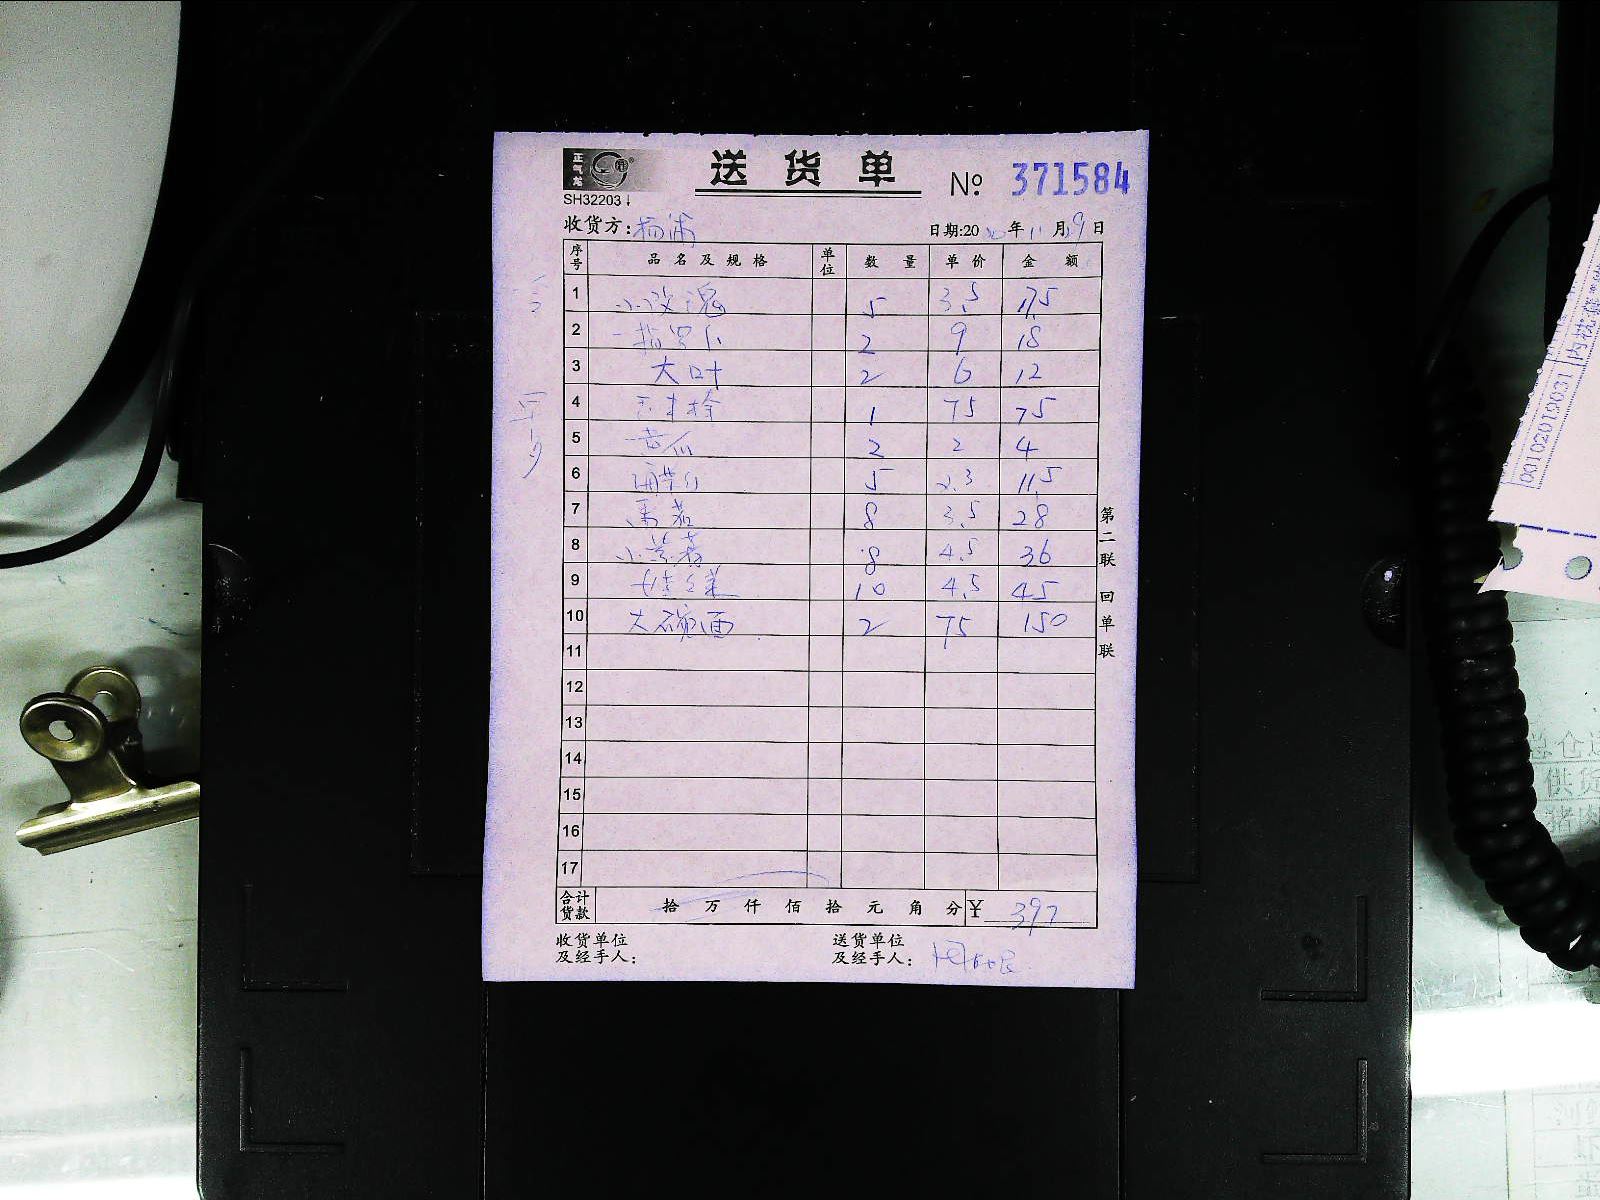 正气龙
送货单
№ 371584
SH32203↓
收货方：杨浦 日期:2020年11月19日
序号 品名及规格 单位 数量 单价 金额
1 小玫瑰 5 3.5 17.5
2 一指罗卜 2 9 18
3 大叶 2 6 12
4 1 75 75
5 苦瓜 2 2 4
6 5 2.3 11.5
7 8 3.5 28
8 8 4.5 36
9 娃娃菜 10 4.5 45
10 大碗面 2 75 150
11
12
13
14
15
16
17
合计货款 拾 万 仟 佰 拾 元 角 分 ¥ 397
收货单位 送货单位
及经手人： 及经手人：
第二联 回单联
00102019031
内
供货